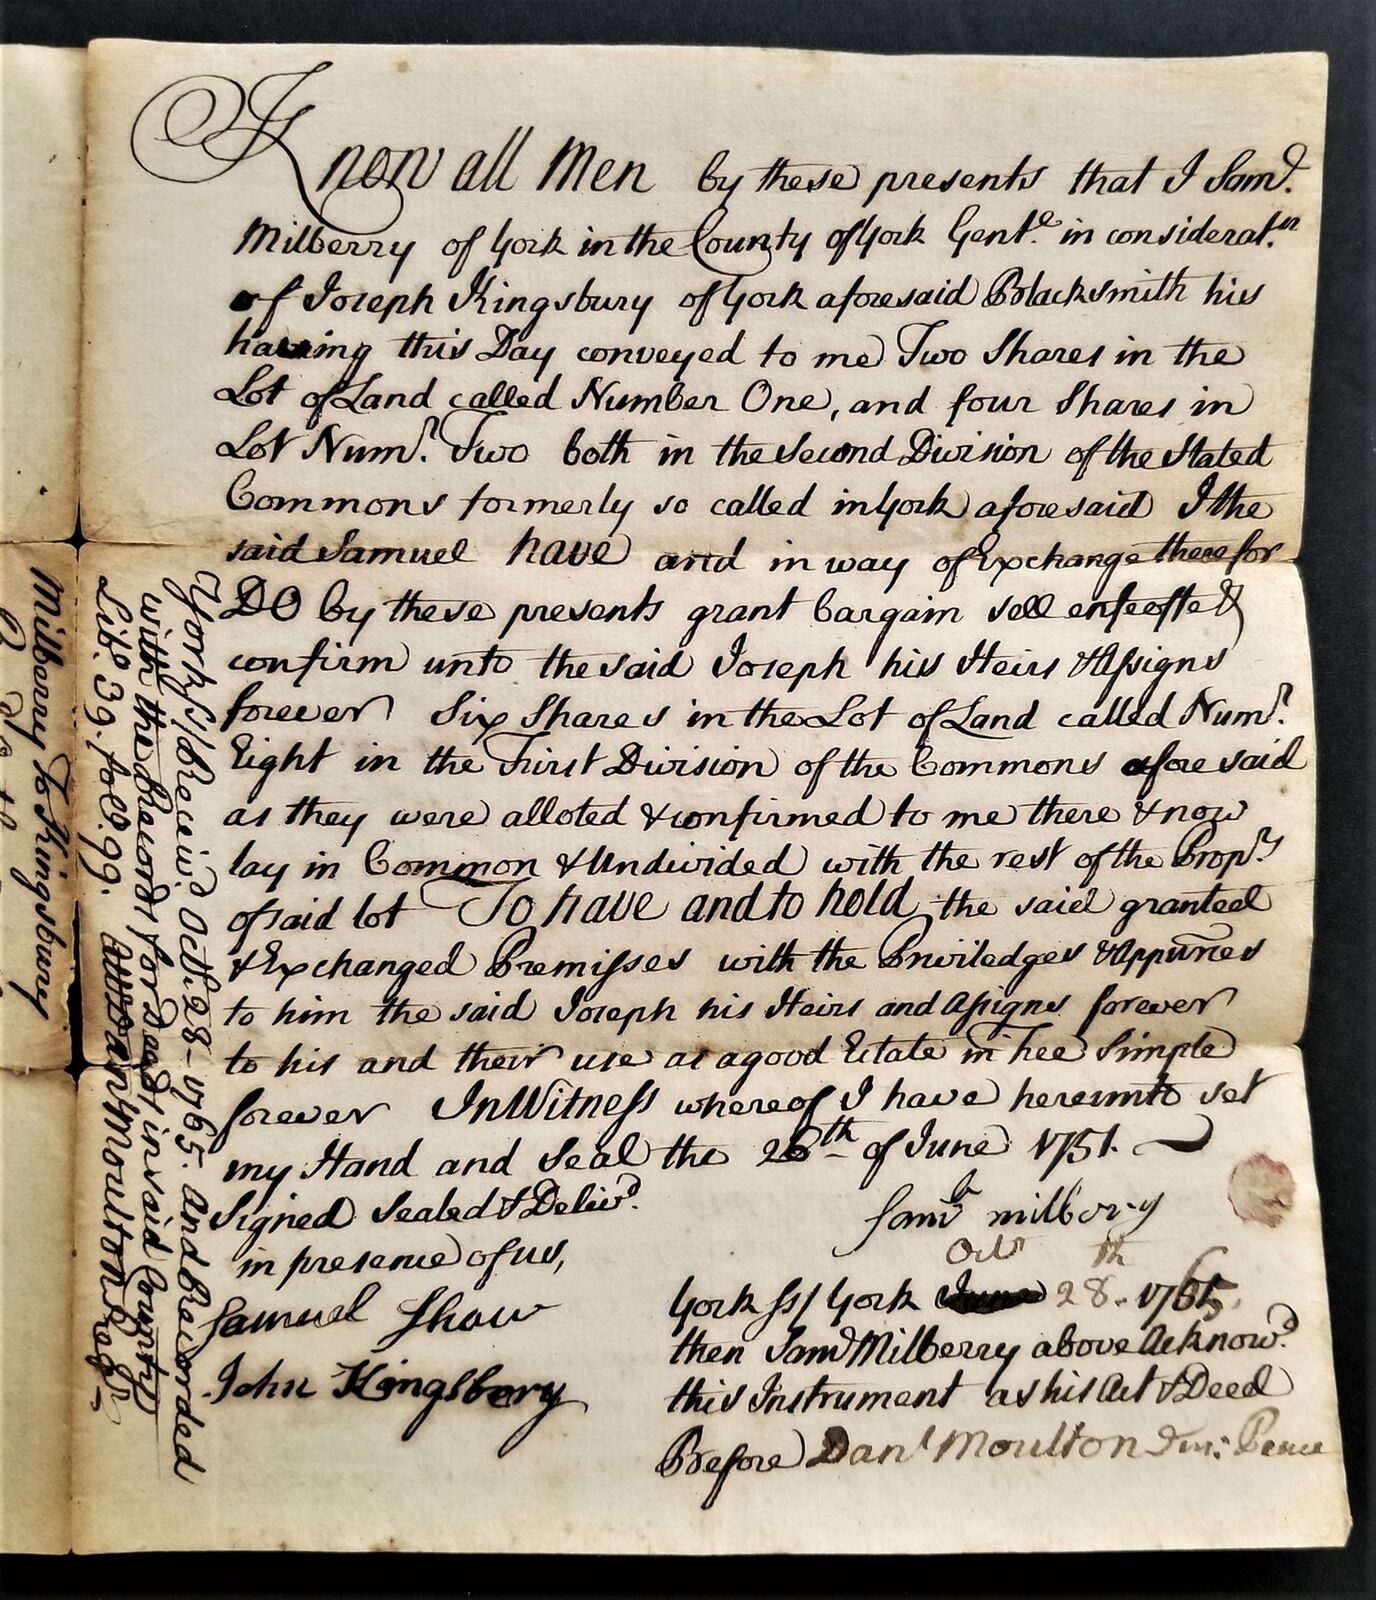 Know all Men by these presents that I Sam.l
Milberry of York in the County of York Gent.e in considerat.n
of Joseph Kingsbury of York aforesaid Blacksmith his
having this Day conveyed to me Two Shares in the
Lot of Land called Number One, and four Shares in
Lot Num.r Two both in the Second Division of the Stated
Commons formerly so called in York aforesaid I the
said Samuel have and in way of Exchange therefor
DO by these presents grant bargain sell enfeoffe &
confirm unto the said Joseph his Heirs & Assigns
forever Six Shares in the Lot of Land called Num.r
Eight in the First Division of the Commons aforesaid
as they were alloted & confirmed to me there & now
lay in Common & Undivided with the rest of the Prop.rs
of said lot To have and to hold the said granted
& Exchanged Premisses with the Priviledges & Appurces
to him the said Joseph his Heirs and Assigns forever
to his and their use as a good Estate in Fee Simple
forever In Witness whereof I have hereunto set
my Hand and Seal the 26th of June 1751.
Signed Sealed & Deliv.d
in presence of us,
Samuel Shaw
John Kingsbery
Sam.ll milbery
Octr th
York ss/ York 28. 1765.
then Sam.l Milberry above Acknow.d
this Instrument as his Act & Deed
Before Dan.l Moulton Jus: Peace
York ss/ Receiv.d Octb. 28 - 1765. and Recorded
with the Records for Deeds in said County
Lib.o 39. fol.o 99.
Att Dan.l Moulton Reg.r
Milberry To Kingsbury